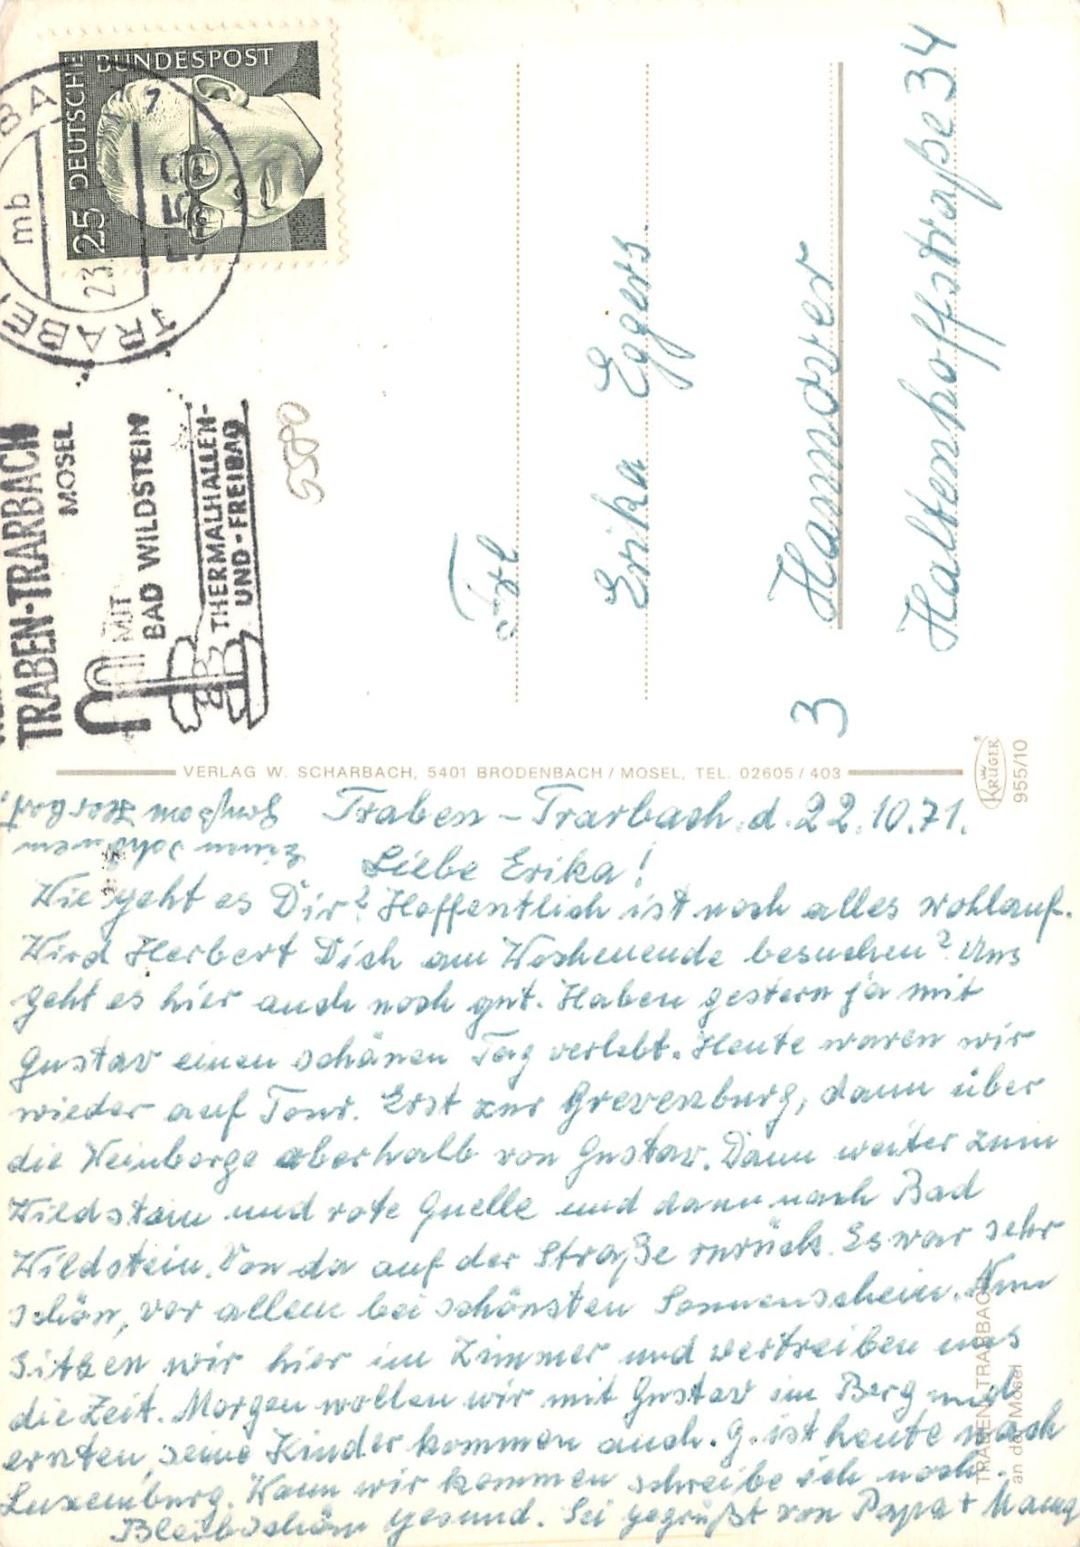 25 DEUTSCHE BUNDESPOST
mb
23.
TRABEN-TRARBACH
MOSEL
MIT
BAD WILDSTEIN
THERMALHALLEN-
UND-FREIBAD
5580
Frl
Erika Eggers
3 Hannover
Haltenhoffstraße 34
VERLAG W. SCHARBACH, 5401 BRODENBACH / MOSEL, TEL. 02605 / 403
KRÜGER
955/10
TRABEN-TRARBACH
an der Mosel
Traben-Trarbach, d. 22.10.71.
Liebe Erika!
Wie geht es Dir? Hoffentlich ist noch alles wohlauf.
Wird Herbert Dich am Wochenende besuchen? Uns
geht es hier auch noch gut. Haben gestern ja mit
Gustav einen schönen Tag verlebt. Heute waren wir
wieder auf Tour. Erst zur Grevenburg, dann über
die Weinberge oberhalb von Gustav. Dann weiter zum
Wildstein und rote Quelle und dann nach Bad
Wildstein. Von da auf der Straße zurück. Es war sehr
schön, vor allem bei schönsten Sonnenschein. Nun
sitzen wir hier im Zimmer und vertreiben uns
die Zeit. Morgen wollen wir mit Gustav im Berg und
ernten, seine Kinder kommen auch. G. ist heute nach
Luxemburg. Wann wir kommen schreibe ich noch.
Bleib schön gesund. Sei gegrüßt von Papa + Mama